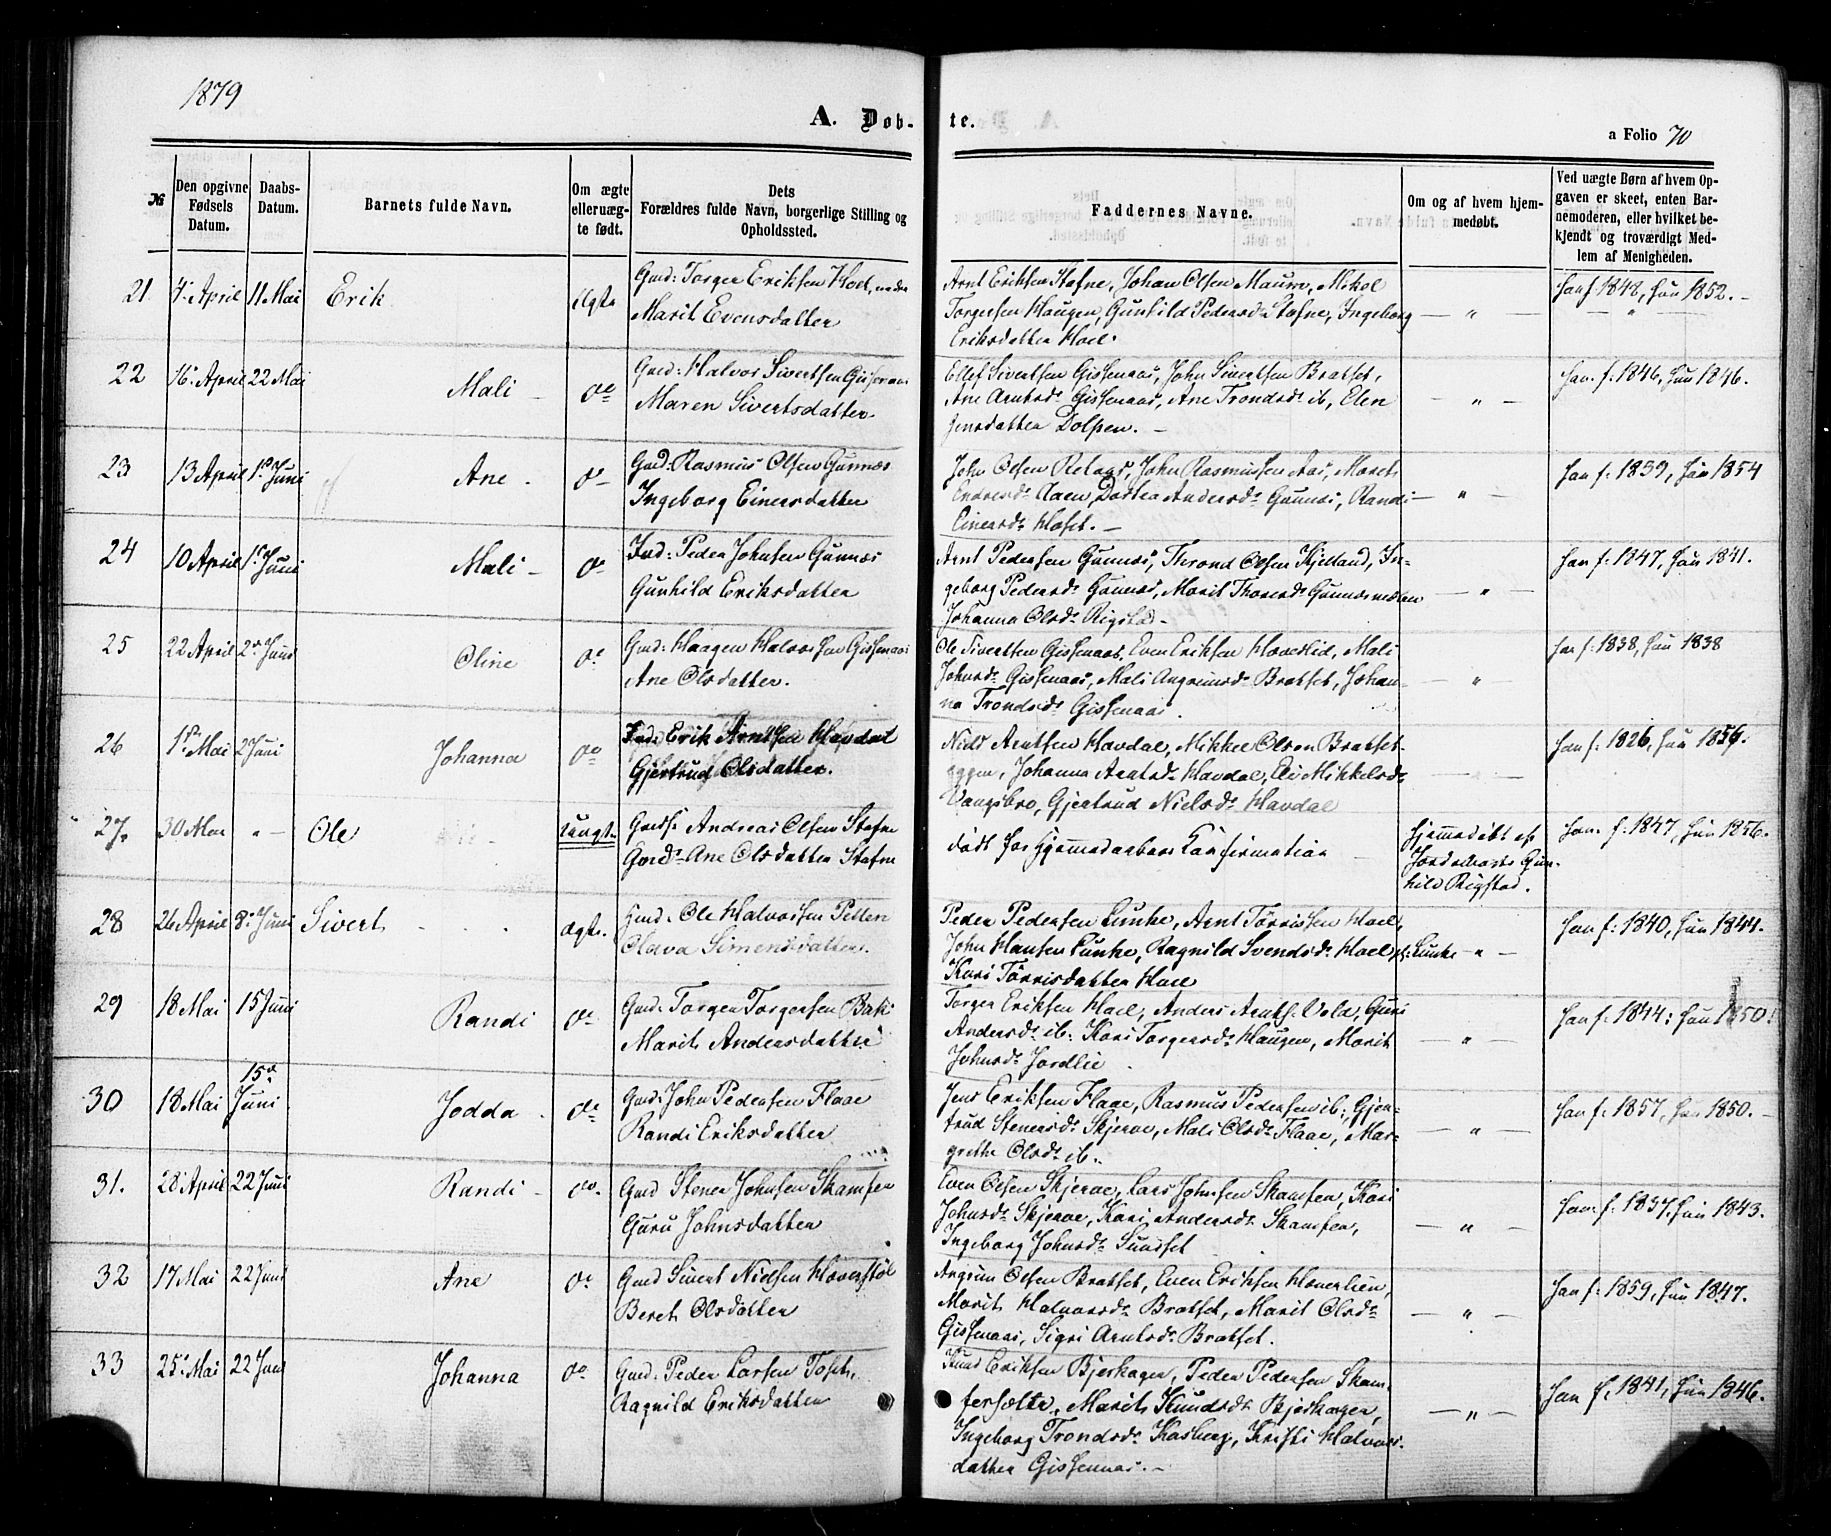 1879
A. Døb-
te.
a Folio 70
№
Den opgivne Fødsels Datum.
Daabs-Datum.
Barnets fulde Navn.
Om ægte eller uægte født.
Dets Forældres fulde Navn, borgerlige Stilling og Opholdssted.
Faddernes Navne.
Om og af hvem hjemmedøbt.
Ved uægte Børn af hvem Opgaven er skeet, enten Barnemoderen, eller hvilket bekjendt og troværdigt Medlem af Menigheden.
21 4de April 11 Mai Erik ægte Gmd: Torger Eriksen Hoel, nedre
Marit Evensdatter
Arnt Eriksen Stafne, Johan Olsen Maurn, Mikol
Torgersen Haugen, Gunhild Pedersd. Stafne, Ingeborg
Eriksdatter Hoel.
— " —
Han f. 1848, Hun 1852. -
22 16. April 22 Mai Mali - do Gmd: Halvor Sivertsen Gisenaas
Maren Sivertsdatter.
Ellef Sivertsen Gissenaas, John Sivertsen Bratset,
Ane Arntsd. Gissenaas, Ane Trondsd. ib, Elen
Jensdatter Dolpen. -
— " —
Han. f. 1846, Hun 1846.
23 13 April 1ste Juni Ane - do Gmd: Rasmus Olsen Gunnes
Ingeborg Einersdatter
John Olsen Aas, John Rasmussen Aas, Marit
Endresd. Aaen, Dortea Andersd. Gunnes, Randi
Einersd. Hoset. -
— " —
Han f. 1839, Hun 1854
24 10 April 1ste Juni Mali - do Ind: Peder Johnsen Gunnes
Gunhild Eriksdatter
Arnt Pedersen Gunnes, Thrond Olsen Kjelland, In-
geborg Pedersd. Gunnes, Marit Thoresd. Gunnesmælen
Johanna Olsd. Rigstad -
— " —
Han f. 1847, Hun 1841.
25 22 April 2den Juni Oline do Gmd: Haagen Halvorsen Gissenaas
Ane Olsdatter.
Ole Sivertsen Gissenaas, Even Eriksen Haverslid, Mali
Johnsd. Gissenaas, Mali Angrimsd. Bratset, Johan-
na Trondsd. Gissenaas.
— " —
Han f. 1838, Hun 1838
26 1ste Mai 2 Juni Johanna do Ind: Erik Arntsen Havdal
Gjertrud Olsdatter.
Nils Arntsen Havdal, Mikkel Olsen Bratset-
eggen, Johanna Arntsd. Havdal, Eli Mikkelsd.
Vangsbro, Gjertrud Nielsd. Havdal
Han f. 1826, Hun 1856.
27. 30 " - Ole uægte. Gmds: Andreas Olsen Stafne
Gmd. Ane Olsdatter Stafne
død før Hjemmedaabens Confirmation
Hjemmedøbt af
Jordemoder Gun-
hild Rigstad.
Han. f. 1847, Hun 1856.
28 26 April 8. Juni Sivert . . . ægte. Gmd: Ole Halvorsen Pellen
Olava Simensdatter.
Peder Pedersen Lunke, Arnt Tørrissen Hoel,
John Hansen Lunke, Ragnild Svendsd. Hoel
Kari Tørrisdatter Hoel
- " -
Han f: 1840, Hun 1844.
29 18 Mai 15 Juni Randi do. Gmd: Torger Torgersen Bak
Marit Andersdatter
Torger Eriksen Hoel, Anders Arntsen Vold, Guri
Andersd. ib: Kari Torgersd. Haugen, Marit
Johnsd. Jordlie
— " —
Han f. 1844: Hun 1850!
30 18 Mai 15de Juni Jodda. do. Gmd: John Pedersen Flaae
Randi Eriksdatter
Jens Eriksen Flaae, Rasmus Pedersen ib., Gjer-
trud Stenersd. Skjerve, Mali Olsd. Flaae, Mar-
grethe Olsd. ib.
— " —
Han f. 1857, Hun 1850. -
31. 28 April 22 Juni Randi - do. Gmd Stener Johnsen Skamfer
Guru Johnsdatter
Even Olsen Skjerve, Lars Johnsen Skamfer, Kari
Johnsd. Skjerve, Kari Andersd. Skamfer,
Ingeborg Johnsd. Sundset
— " —
Han. f. 1837, Hun 1843.
32 17 Mai 22 Juni Ane do. Gmd Sivert Nielsen Haverstøl
Beret Olsdatter
Angrim Olsen Bratset, Even Eriksen Haverlien,
Marit Halvorsd. Bratset, Marit Olsd.
Gissenaas, Sigri Arntsd. Bratset.
— " —
Han f: 1859, Hun 1847.
33 25. Mai 22 Juni Johanna do. Gmd: Peder Larsen Toset,
Ragnild Eriksdatter
Knud Eriksen Bjerkager, Peder Pedersen Skam-
fersætre, Marit Knudsd. Bjerkager,
Ingeborg Trondsd. Kasberg, Kristi Halvors-
datter Gissenaas. -
— " —
Han f. 1841, Hun 1846.